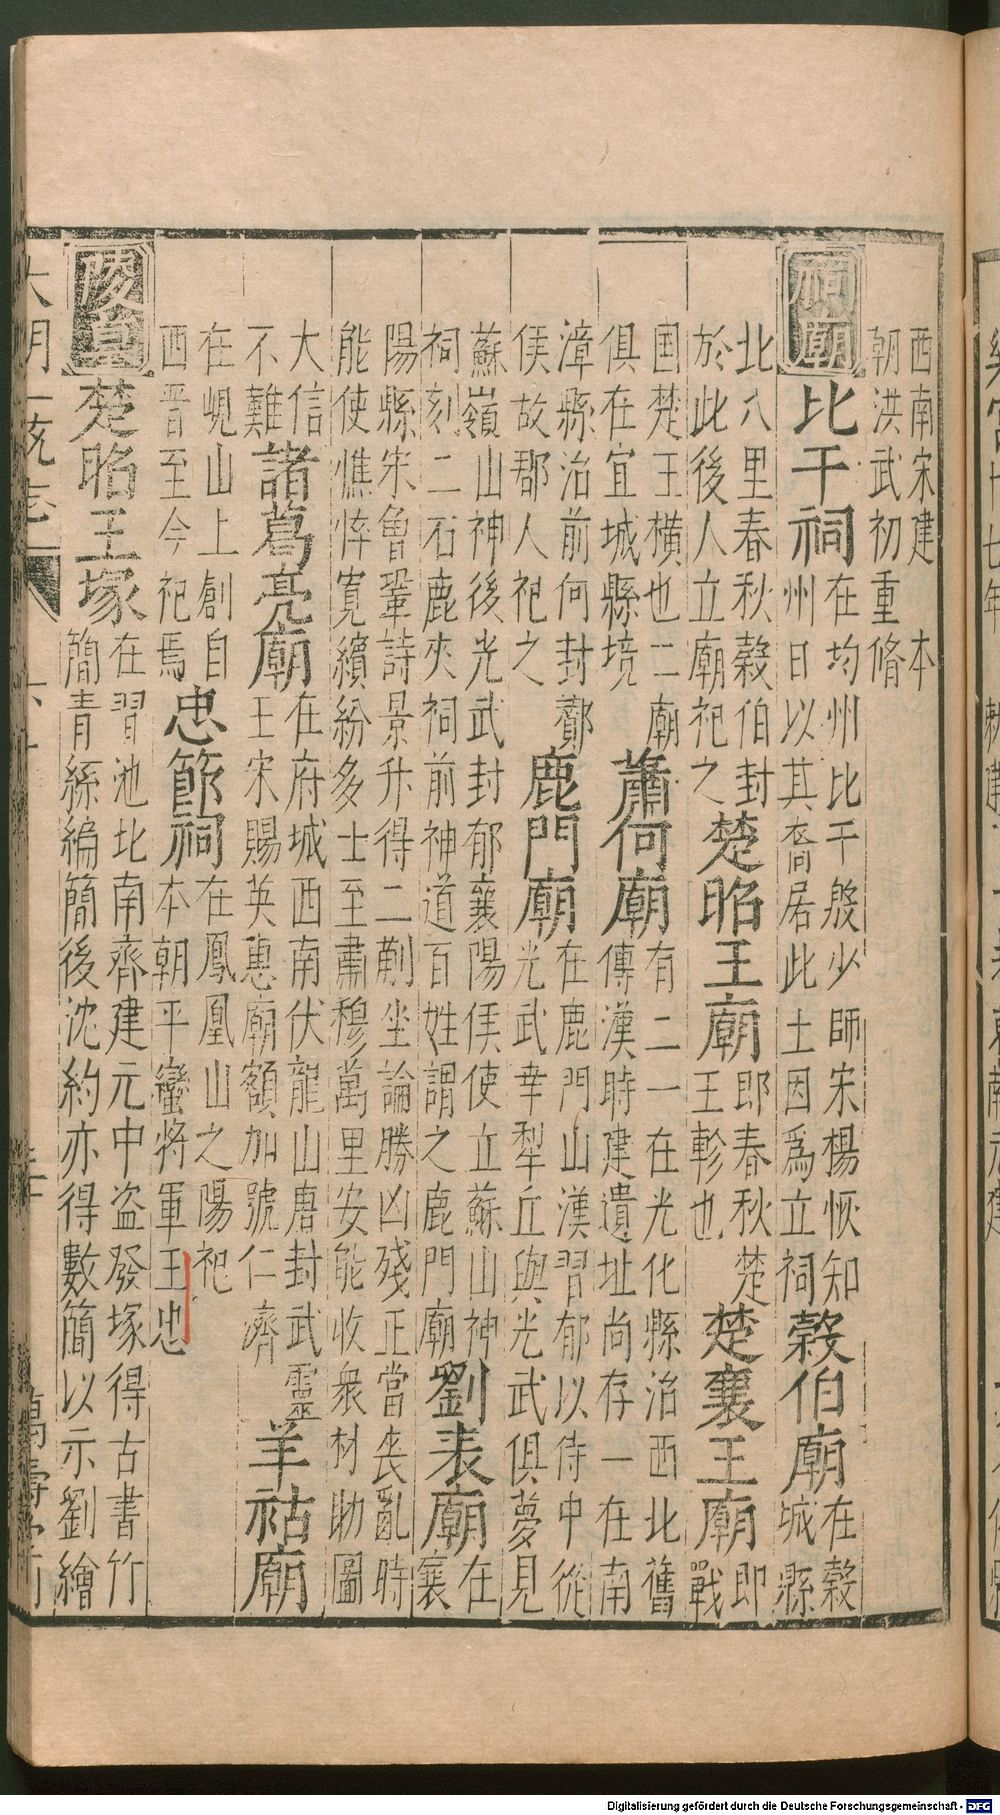 西南宋建 本
朝洪武初重脩
祠廟 比干祠 在均州比干殷少師宋楊恢知州日以其裔居此土因爲立祠 穀伯廟 在穀城縣
北八里春秋穀伯封於此後人立廟祀之 楚昭王廟 即春秋楚王軫也 楚襄王廟 即戰
国楚王橫也二廟俱在宜城縣境 蕭何廟 有二一在光化縣治西北舊傳漢時建遺址尚存一在南
漳縣治前何封酇侯故郡人祀之 鹿門廟 在鹿門山漢習郁以侍中從光武幸犁丘與光武俱夢見
蘇嶺山神後光武封郁襄陽侯使立蘇山神祠刻二石鹿夾祠前神道百姓謂之鹿門廟 劉表廟 在襄
陽縣宋魯鞏詩景升得二蒯坐論勝凶殘正當喪亂時能使憔悴寬繽紛多士至肅穆萬里安能收衆材助圖
大信不難 諸葛亮廟 在府城西南伏龍山唐封武靈王宋賜英惠廟額加號仁濟 羊祜廟
在峴山上創自西晉至今祀焉 忠節祠 在鳳凰山之陽祀本朝平蠻將軍王忠
陵墓 楚昭王塚 在習池北南齊建元中盗發塚得古書竹簡青絲編簡後沈約亦得數簡以示劉繪
大明一統志
Digitalisierung gefördert durch die Deutsche Forschungsgemeinschaft - DFG